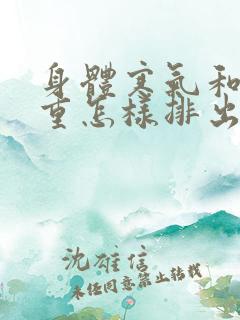 身體寒氣和
重怎樣排出
沈雄信
未经同意禁止转载